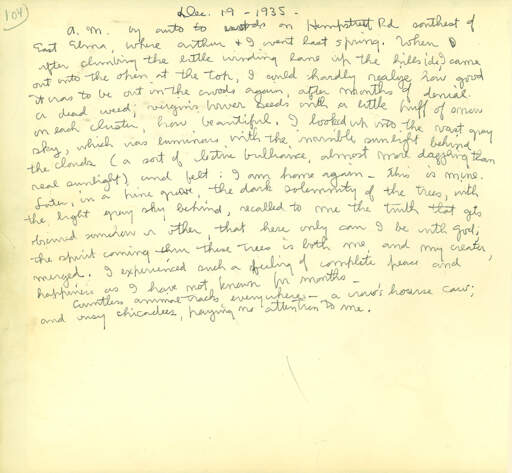 104
Dec. 19 - 1935 -
A.M. by auto to woods on Hempstreet Rd southeast of
East Elma, where Arthur & I went last spring. When I
after climbing the little winding lane up the hillside, came
out into the open at the top, I could hardly realize how good
it was to be out in the woods again, after months of denial.
A dead weed; virgin's bower seeds with a little puff of snow
on each cluster, how beautiful. I looked up into the vast gray
sky, which was luminous with the invisible sunlight behind
the clouds (a sort of brilliance, almost more dazzling than
real sunlight) and felt: I am home again - this is mine.
Later, in a pine grove, the dark solemnity of the trees, with
the light gray sky behind, recalled to me the truth that gets
dimmed somehow or other, that here only can I be with god;
the spirit coming thru these trees is both me, and my creator,
merged. I experienced such a feeling of complete peace and
happiness as I have not known for months -
Countless animal tracks everywhere - a crow's hoarse caw;
and busy chicadees, paying no attention to me.